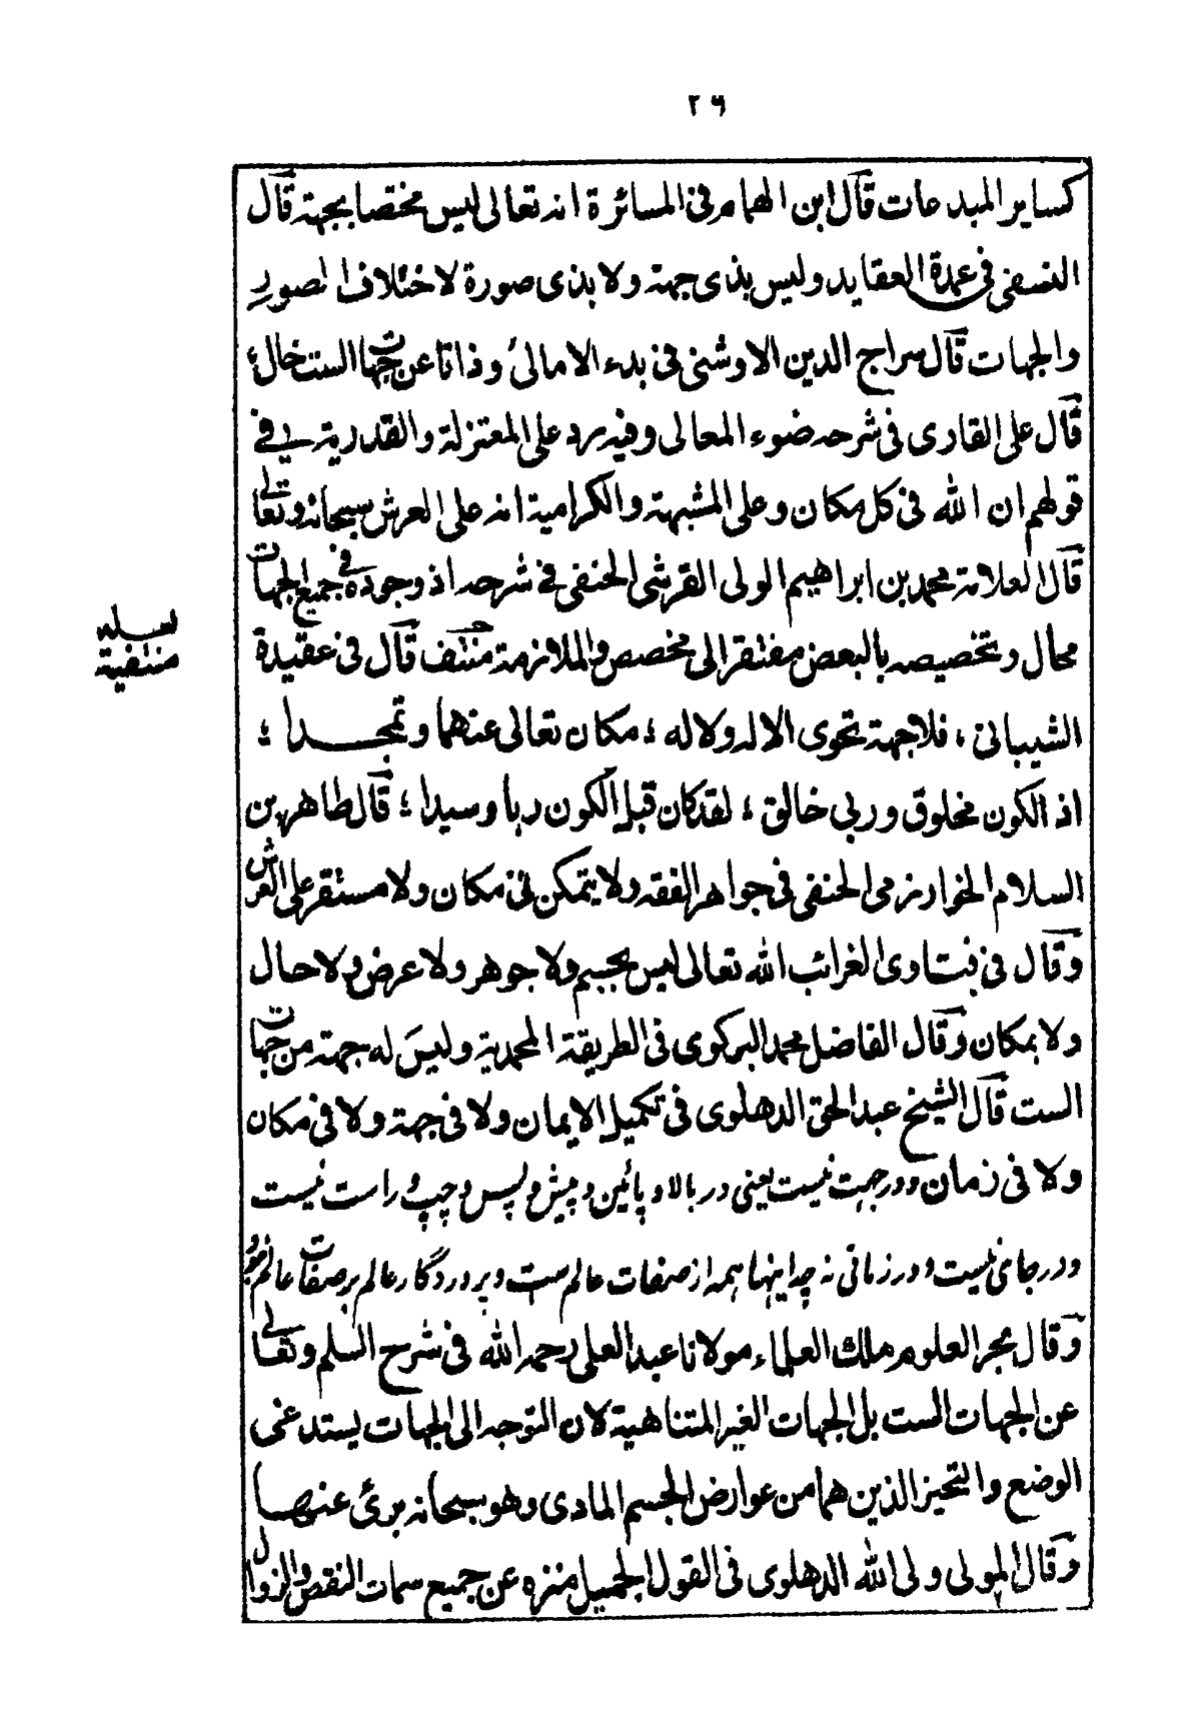 ٢٦
كساير المبدعات قال ابن الهمام في المسائرة انه تعالى ليس مختصا بجهة قال
النسفي في عمدة العقايد وليس بذى جهة ولا بذى صورة لاختلاف الصور
والجهات قال سراج الدين الاوشى في بدء الامالى وذاتا عن جهات الست خال ؛
قال على القارى في شرحه ضوء المعالى وفيه رد على المعتزلة والقدرية في
قولهم ان الله في كل مكان وعلى المشبهة والكرامية انه على العرش سبحانه وتعالى
قال العلامة محمد بن ابراهيم الولى القرشى الحنفى في شرحه اذ وجوده في جميع الجهات
محال وتخصيصه بالبعض مفتقر الى مخصص والملازمة منتف قال في عقيدة
لعله
منتفية
الشيبانى ، فلا جهة تحوى الاله ولا له ؛ مكان تعالى عنهما وتمجدا ؛
اذ الكون مخلوق وربى خالق ؛ لقد كان قبل الكون ربا وسيدا ؛ قال طاهر بن
السلام الخوارزمى الحنفى في جواهر الفقه ولا يتمكن في مكان ولا مستقر على العرش
وقال في فتاوى الغرائب الله تعالى ليس بجسم ولا جوهر ولا عرض ولا حال
ولا بمكان وقال الفاضل محمد البركوى في الطريقة المحمدية وليس له جهة من جهات
الست قال الشيخ عبد الحق الدهلوى في تكميل الايمان ولا في جهة ولا في مكان
ولا في زمان ودر جهت نيست يعنى در بالا و پائين و پيش و پس و چپ و راست نيست
ودر جاى نيست و در زمانى نه چه اينها همه از صفات عالم ست و پروردگار عالم بر صفات عالم نبود
وقال بحر العلوم ملك العلماء مولانا عبد العلى رحمه الله في شرح السلم وتعالى
عن الجهات الست بل الجهات الغير المتناهية لان التوجه الى الجهات يستدعى
الوضع والتحيز الذين هما من عوارض الجسم المادى وهو سبحانه برئ عنهما
وقال المولى ولى الله الدهلوى في القول الجميل منزه عن جميع سمات النقص والزوال